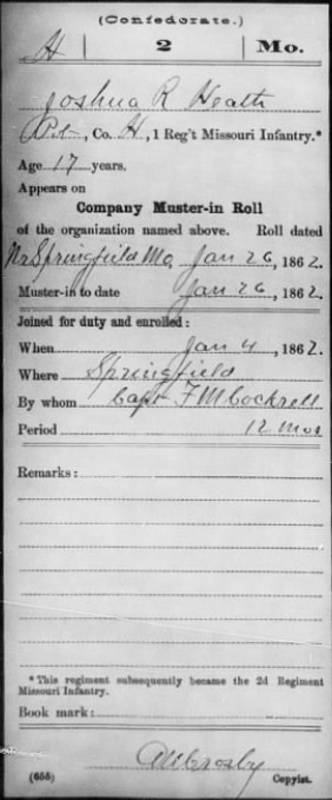 (Confederate.)
H | 2 | Mo.
Joshua R Heath
Pvt, Co. H, 1 Reg't Missouri Infantry.*
Age 17 years.
Appears on
Company Muster-in Roll
of the organization named above. Roll dated
Nr Springfield Mo, Jan 26, 1862.
Muster-in to date Jan 26, 1862.
Joined for duty and enrolled:
When Jan 4, 1862.
Where Springfield
By whom Capt F M Cockrell
Period 12 mos
Remarks:
*This regiment subsequently became the 2d Regiment
Missouri Infantry.
Book mark:
Crosby
(655) Copyist.